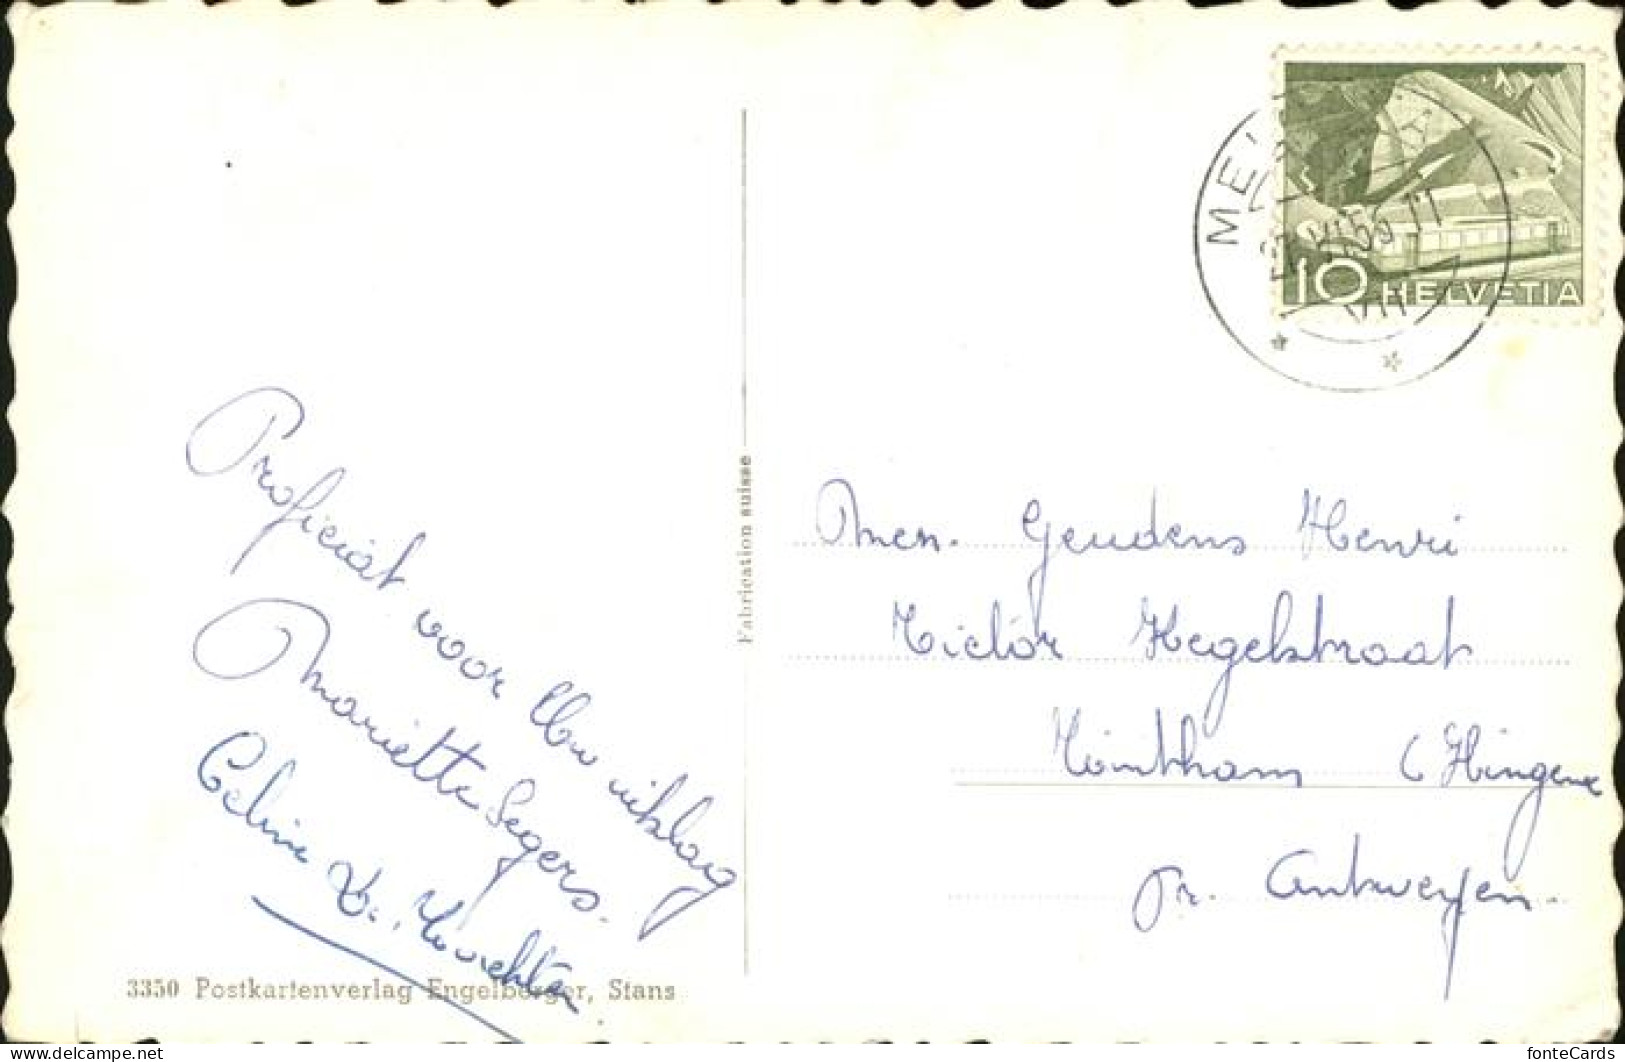 Proficiat voor Uw uitslag
Mariette Segers.
Celine V.
3350 Postkartenverlag Engelberger, Stans
Fabrication suisse
10 HELVETIA
Men. Geudens Henri
Victor Hegelstraat
Wintham (Hingene
Pr. Antwerpen.
fonteCards